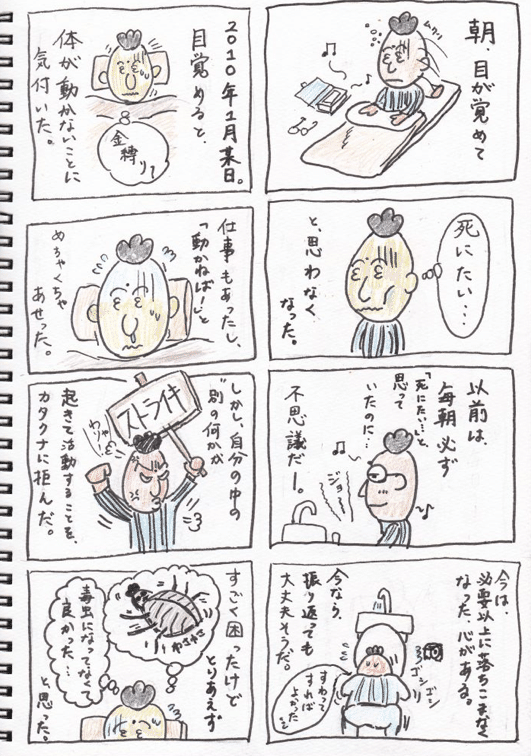 朝、目が覚めて
ムクリ
死にたい…
と、思わなく
なった。
以前は
毎朝必ず
「死にたい…」と
思って
いたのに…
不思議だー。
ジョー
今は、
必要以上に落ちこまなく
なった、心がある。
今なら、
振り返っても
大丈夫そうだ。
ゴシゴシ
すわって
すれば
よかった
2010年1月某日。
目覚めると、
体が動かないことに
気付いた。
金縛り?
仕事もあったし、
「動かねば!」と
めちゃくちゃ
あせった。
しかし、自分の中の
"別の何かが
ストライキ
起きて活動することを、
カタクナに拒んだ。
すごく困ったけど
とりあえず
カサカサ
毒虫になってなくて
良かった…
と思った。